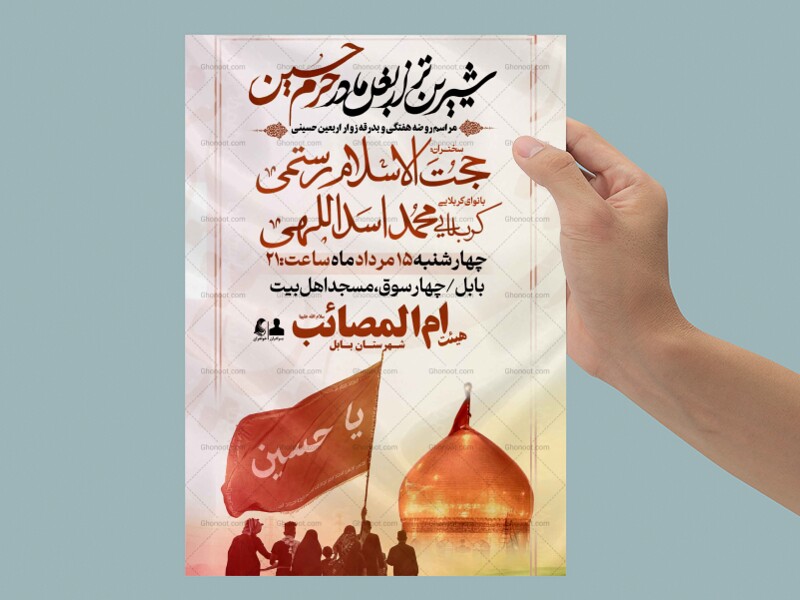 شیرین تر از بغل مادر حرم حسین
مراسم روضه هفتگی و بدرقه زوار اربعین حسینی
سخنران:
حجت الاسلام رستمی
بانوای کربلایی
کربلایی محمد اسداللهی
چهارشنبه ۱۵ مرداد ماه ساعت:۲۱
بابل / چهارسوق، مسجد اهل بیت
هیئت ام المصائب سلام الله علیها
شهرستان بابل
برادران خواهران
یا حسین
Ghonoot.com